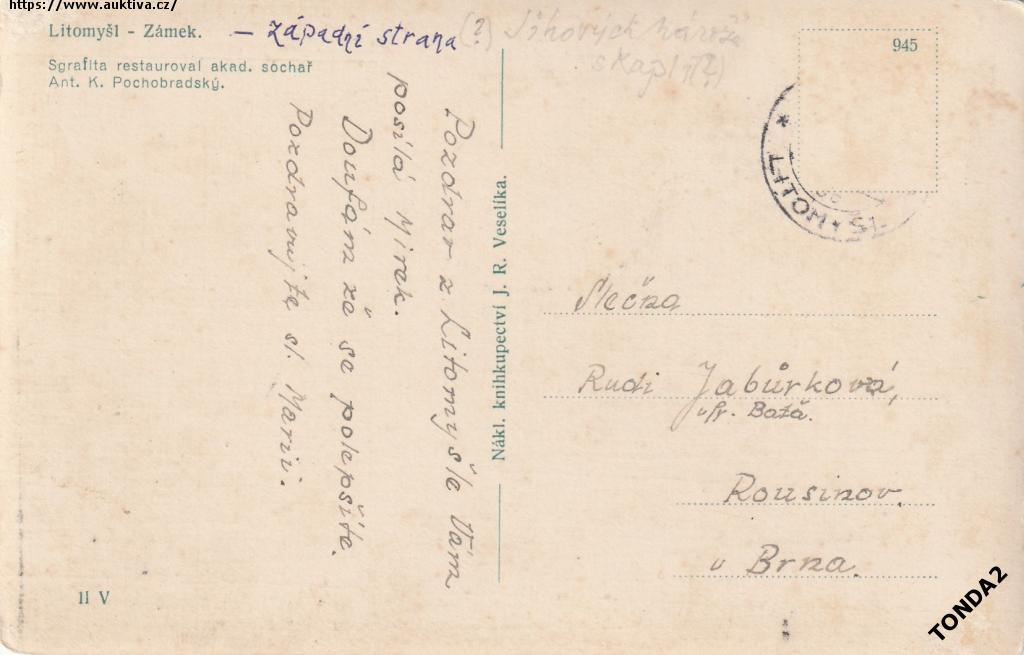 https://www.auktiva.cz/
Litomyšl - Zámek. — západní strana (?)
Sgrafita restauroval akad. sochař
Ant. K. Pochobradský.
945
* LITOMYŠL
Pozdrav z Litomyšle Vám
posílá Mirek.
Doufám že se polepšíte.
Pozdravujte sl. Marii.
Nákl. knihkupectví J. R. Veselíka.
Slečna
Rudi Jabůrková,
Rousinov.
u Brna.
II V
TONDA2